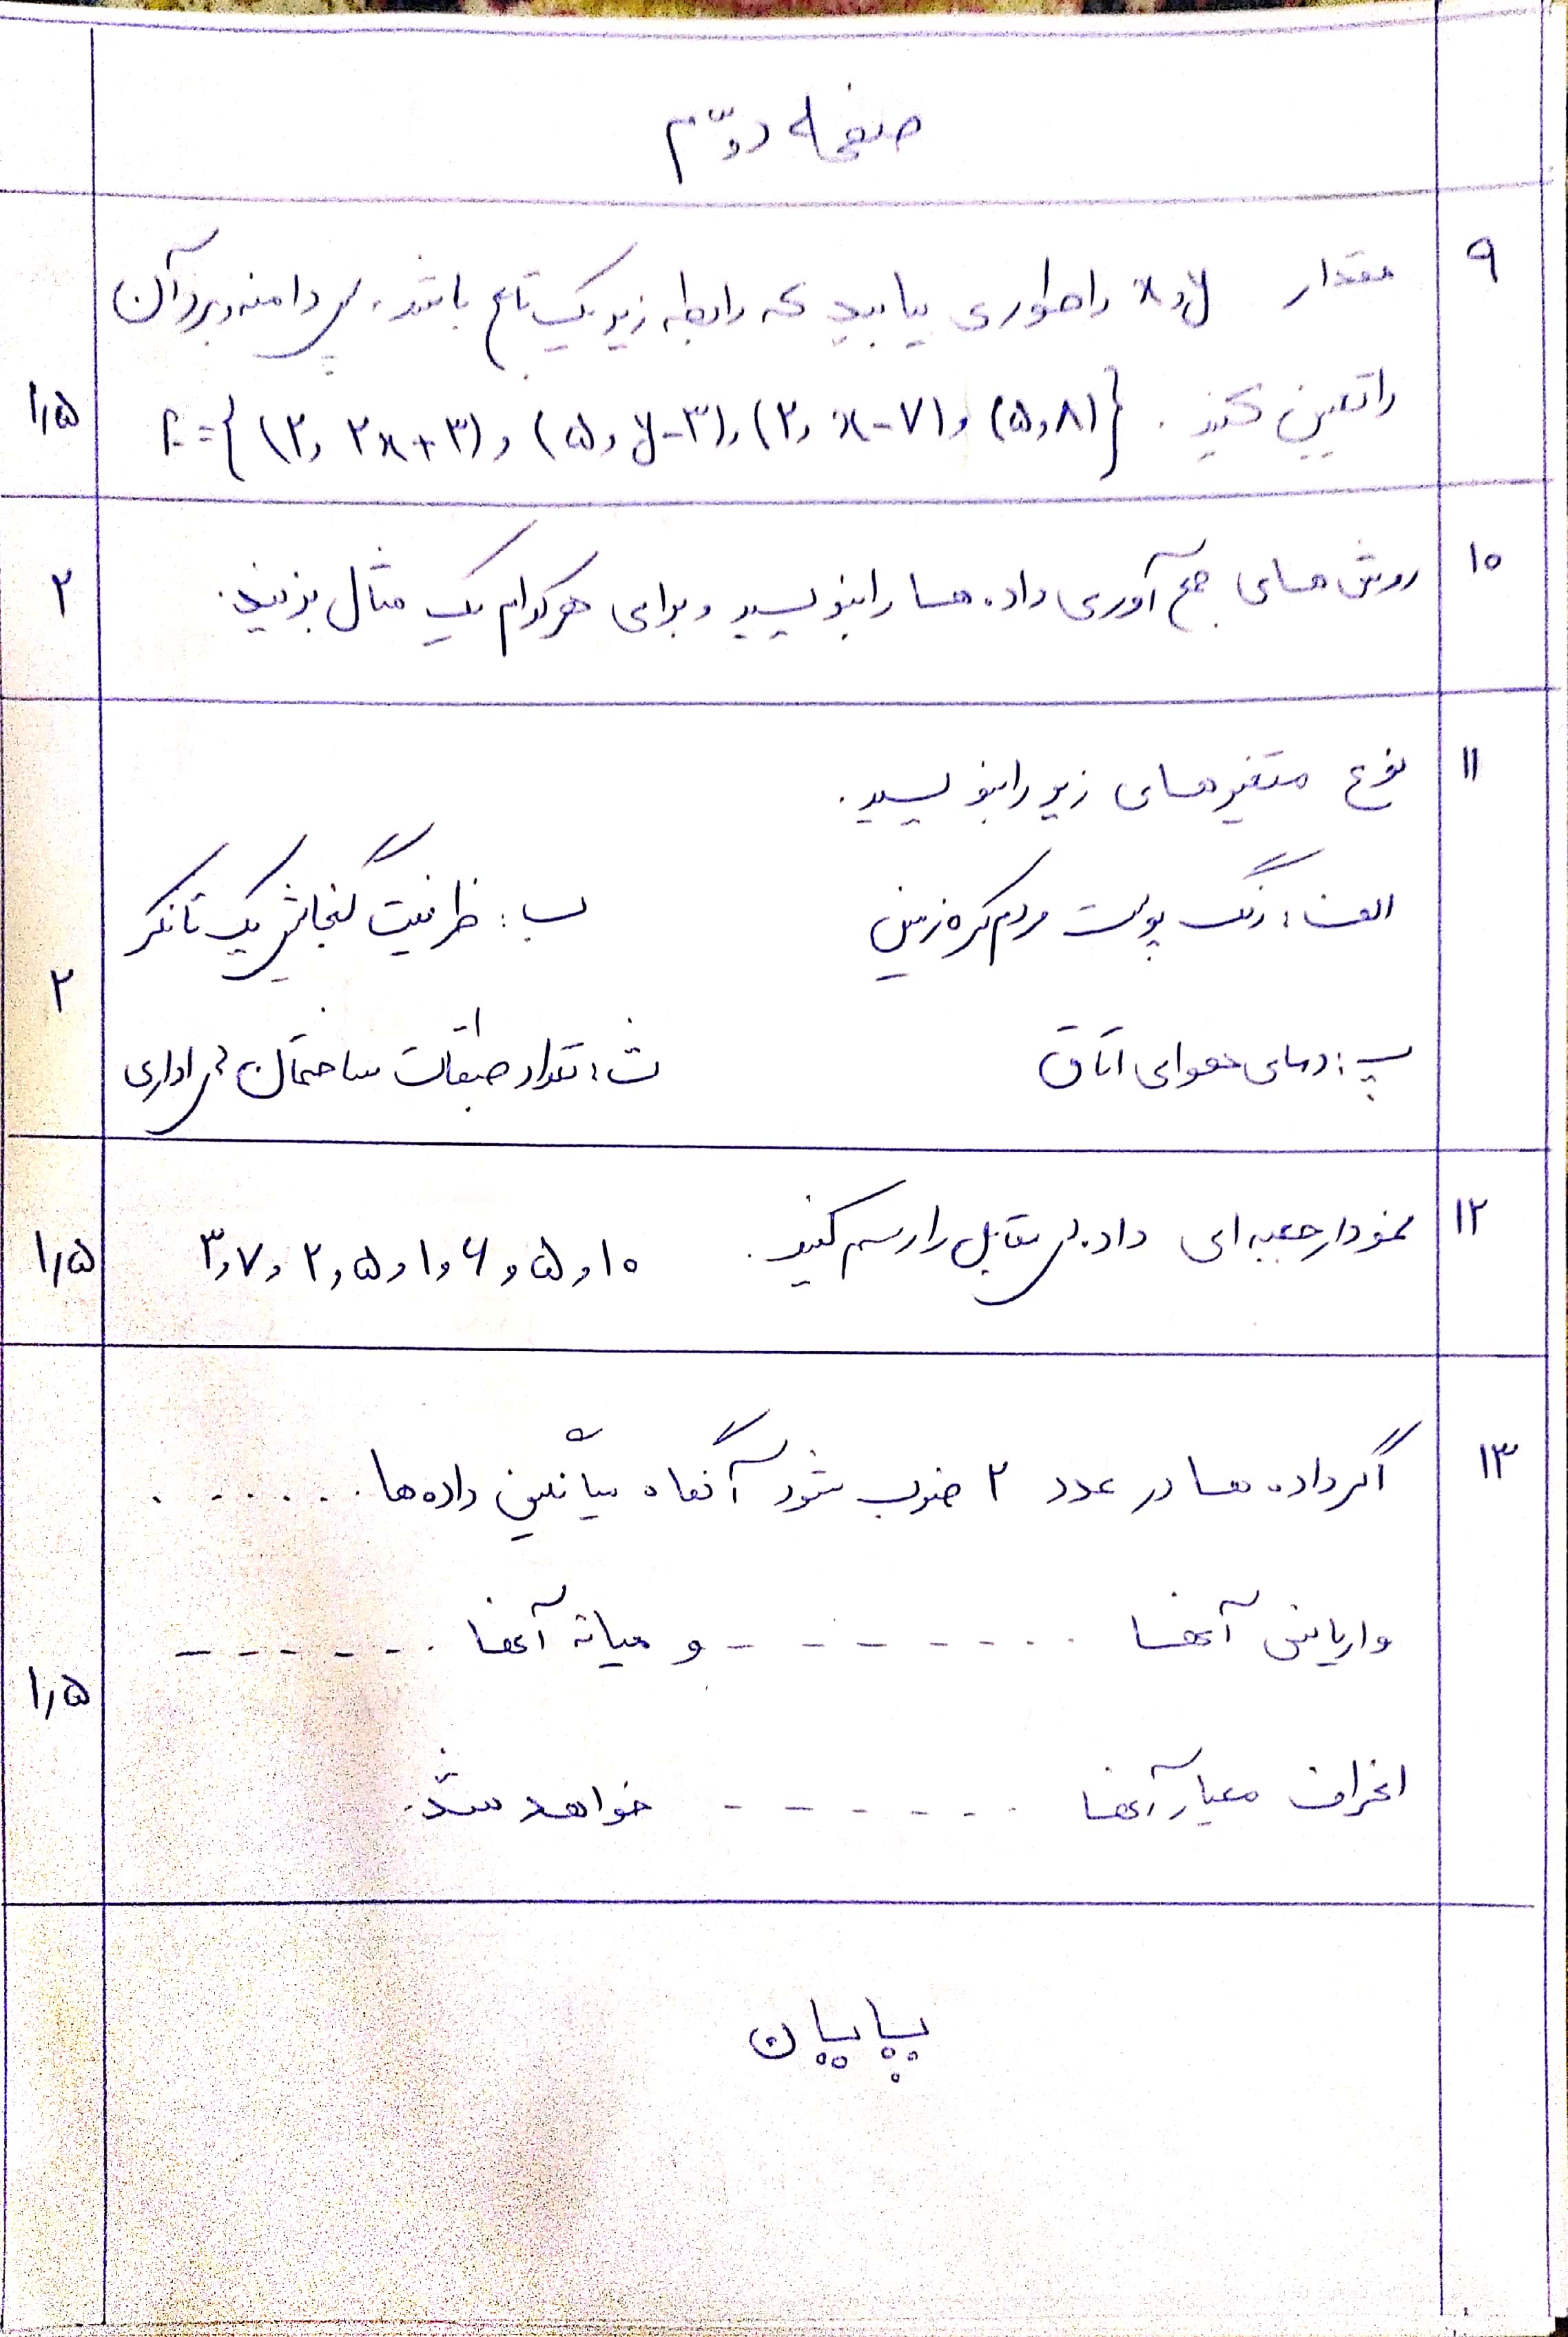 صفحه دوّم
۹
مقدار x و y را طوری بیابید که رابطه زیر یک تابع باشد، سپس دامنه و برد آن
را تعیین کنید. f = {(۲, ۲x+۳), (۵, y-۳), (۲, x-۷), (۵,۸)}
۱٫۵
۱۰
روش های جمع آوری داده ها را بنویسید و برای هر کدام یک مثال بزنید.
۲
۱۱
نوع متغیرهای زیر را بنویسید.
الف: رنگ پوست مردم کره زمین
ب: ظرفیت گنجایش یک تانکر
پ: دمای هوای اتاق
ت: تعداد طبقات ساختمان های اداری
۲
۱۲
نمودار جعبه ای داده های مقابل را رسم کنید. ۳,۷,۲,۵,۱,۶,۵,۱۰
۱٫۵
۱۳
اگر داده ها در عدد ۲ ضرب شود آنگاه میانگین داده ها .......
واریانس آنها --------- و میانه آنها -------
انحراف معیار آنها ------- خواهد شد.
۱٫۵
پایان